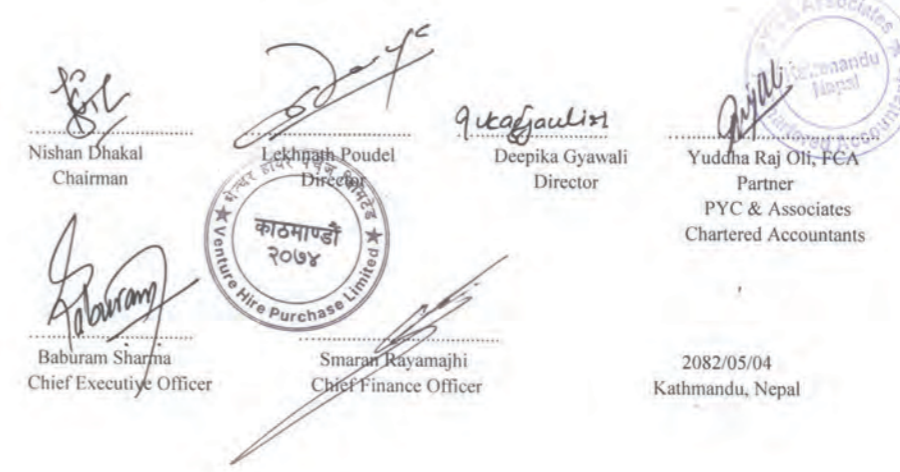 Nishan Dhakal
Chairman
Lekhnath Poudel
Director
Deepika Gyawali
Director
Yuddha Raj Oli, FCA
Partner
PYC & Associates
Chartered Accountants
PYC & Associates
Kathmandu
Nepal
Chartered Accountants
भेन्चर हायर पर्चेज लिमिटेड
काठमाण्डौं
२०७४
Venture Hire Purchase Limited
Baburam
Baburam Sharma
Chief Executive Officer
Smaran Rayamajhi
Chief Finance Officer
2082/05/04
Kathmandu, Nepal